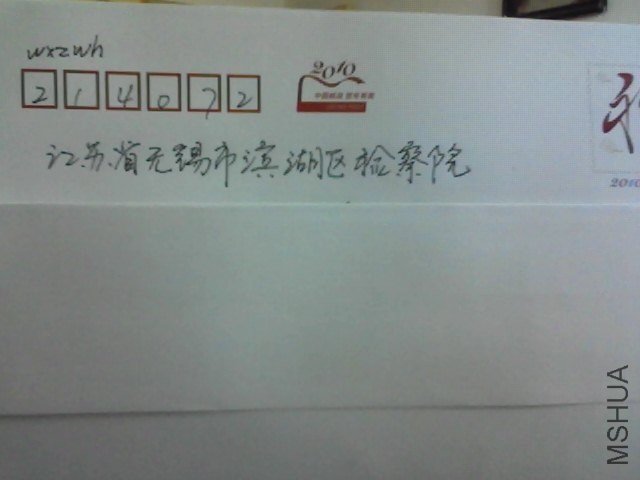 wxzwh
214072
2010
江苏省无锡市滨湖区检察院
2010
MSHUA